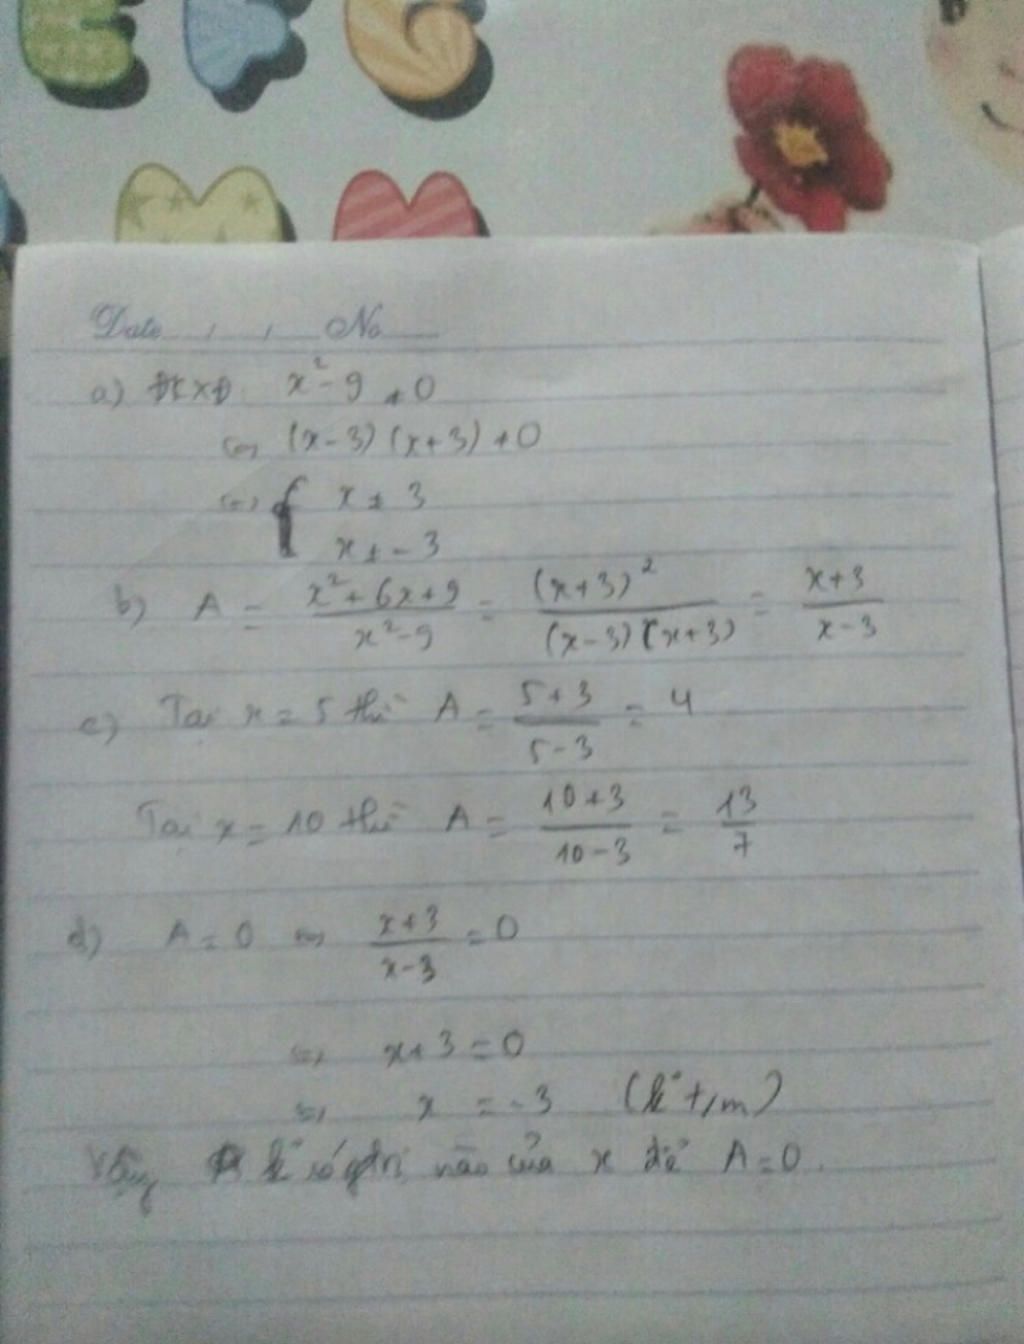 E F G
M M
Date , , No
a) ĐKXĐ: x² - 9 ≠ 0
<=> (x - 3)(x + 3) ≠ 0
<=> { x ≠ 3
x ≠ - 3
b) A = (x² + 6x + 9)/(x² - 9) = (x + 3)²/((x - 3)(x + 3)) = (x + 3)/(x - 3)
c) Tại x = 5 thì A = (5 + 3)/(5 - 3) = 4
Tại x = 10 thì A = (10 + 3)/(10 - 3) = 13/7
d) A = 0 <=> (x + 3)/(x - 3) = 0
<=> x + 3 = 0
<=> x = - 3 (k° t/m)
Vậy k° có gtrị nào của x để A = 0.